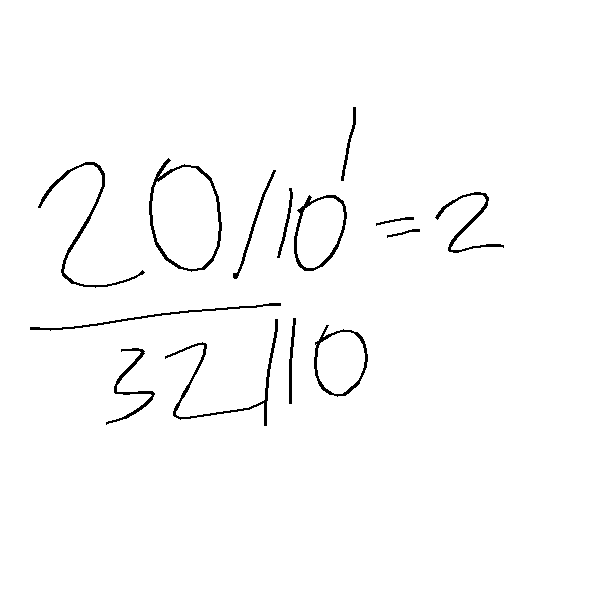 20/10' = 2
32/10